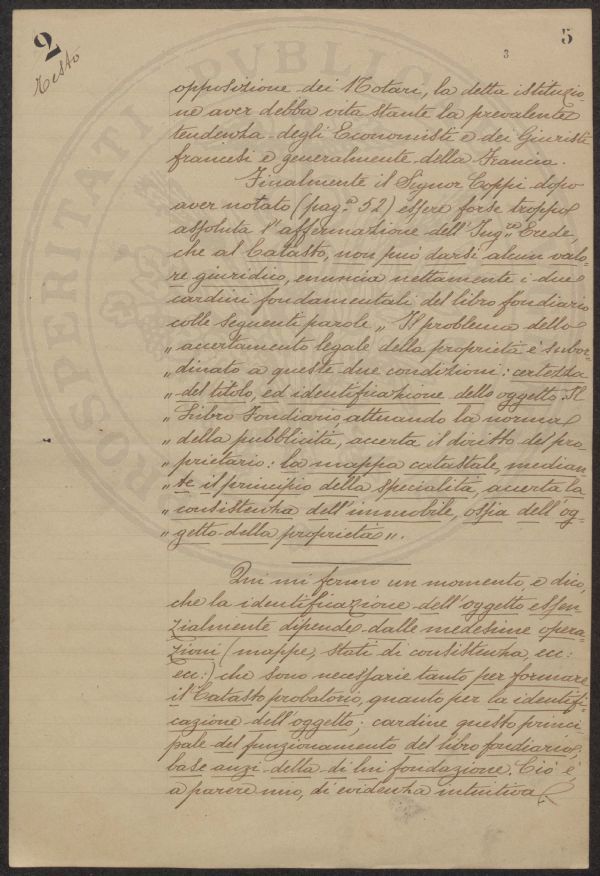 2
Testo
3
5
PROSPERITATI PUBLICAE
opposizione dei Notari, la detta istituzio-
ne aver debba vita stante la prevalente
tendenza degli Economisti e dei Giuristi
francesi e generalmente della Francia.
Finalmente il Signor Coppi dopo
aver notato (pag.ª 52) essere forse troppo
assoluta l'affermazione dell'Ing.re Erede,
che al Catasto, non può darsi alcun valo-
re giuridico, enuncia nettamente i due
cardini fondamentali del libro fondiario
colle seguenti parole „ Il problema dello
„ accertamento legale della proprietà è subor-
„ dinato a queste due condizioni: certezza
„ del titolo, ed identificazione dello oggetto. Il
„ Libro Fondiario, attuando la norma
„ della pubblicità, accerta il diritto del pro-
„ prietario: la mappa catastale, median-
„ te il principio della specialità, accerta la
„ consistenza dell'immobile, ossia dell'og-
„ getto della proprietà „.
Qui mi fermo un momento, e dico,
che la identificazione dell'oggetto essen-
zialmente dipende dalle medesime opera-
zioni (mappe, stati di consistenza, ecc:
ecc:) che sono necessarie tanto per formare
il Catasto probatorio, quanto per la identifi-
cazione dell'oggetto; cardine questo princi-
pale del funzionamento del libro fondiario,
base anzi della di lui fondazione. Ciò è,
a parere mio, di evidenza intuitiva